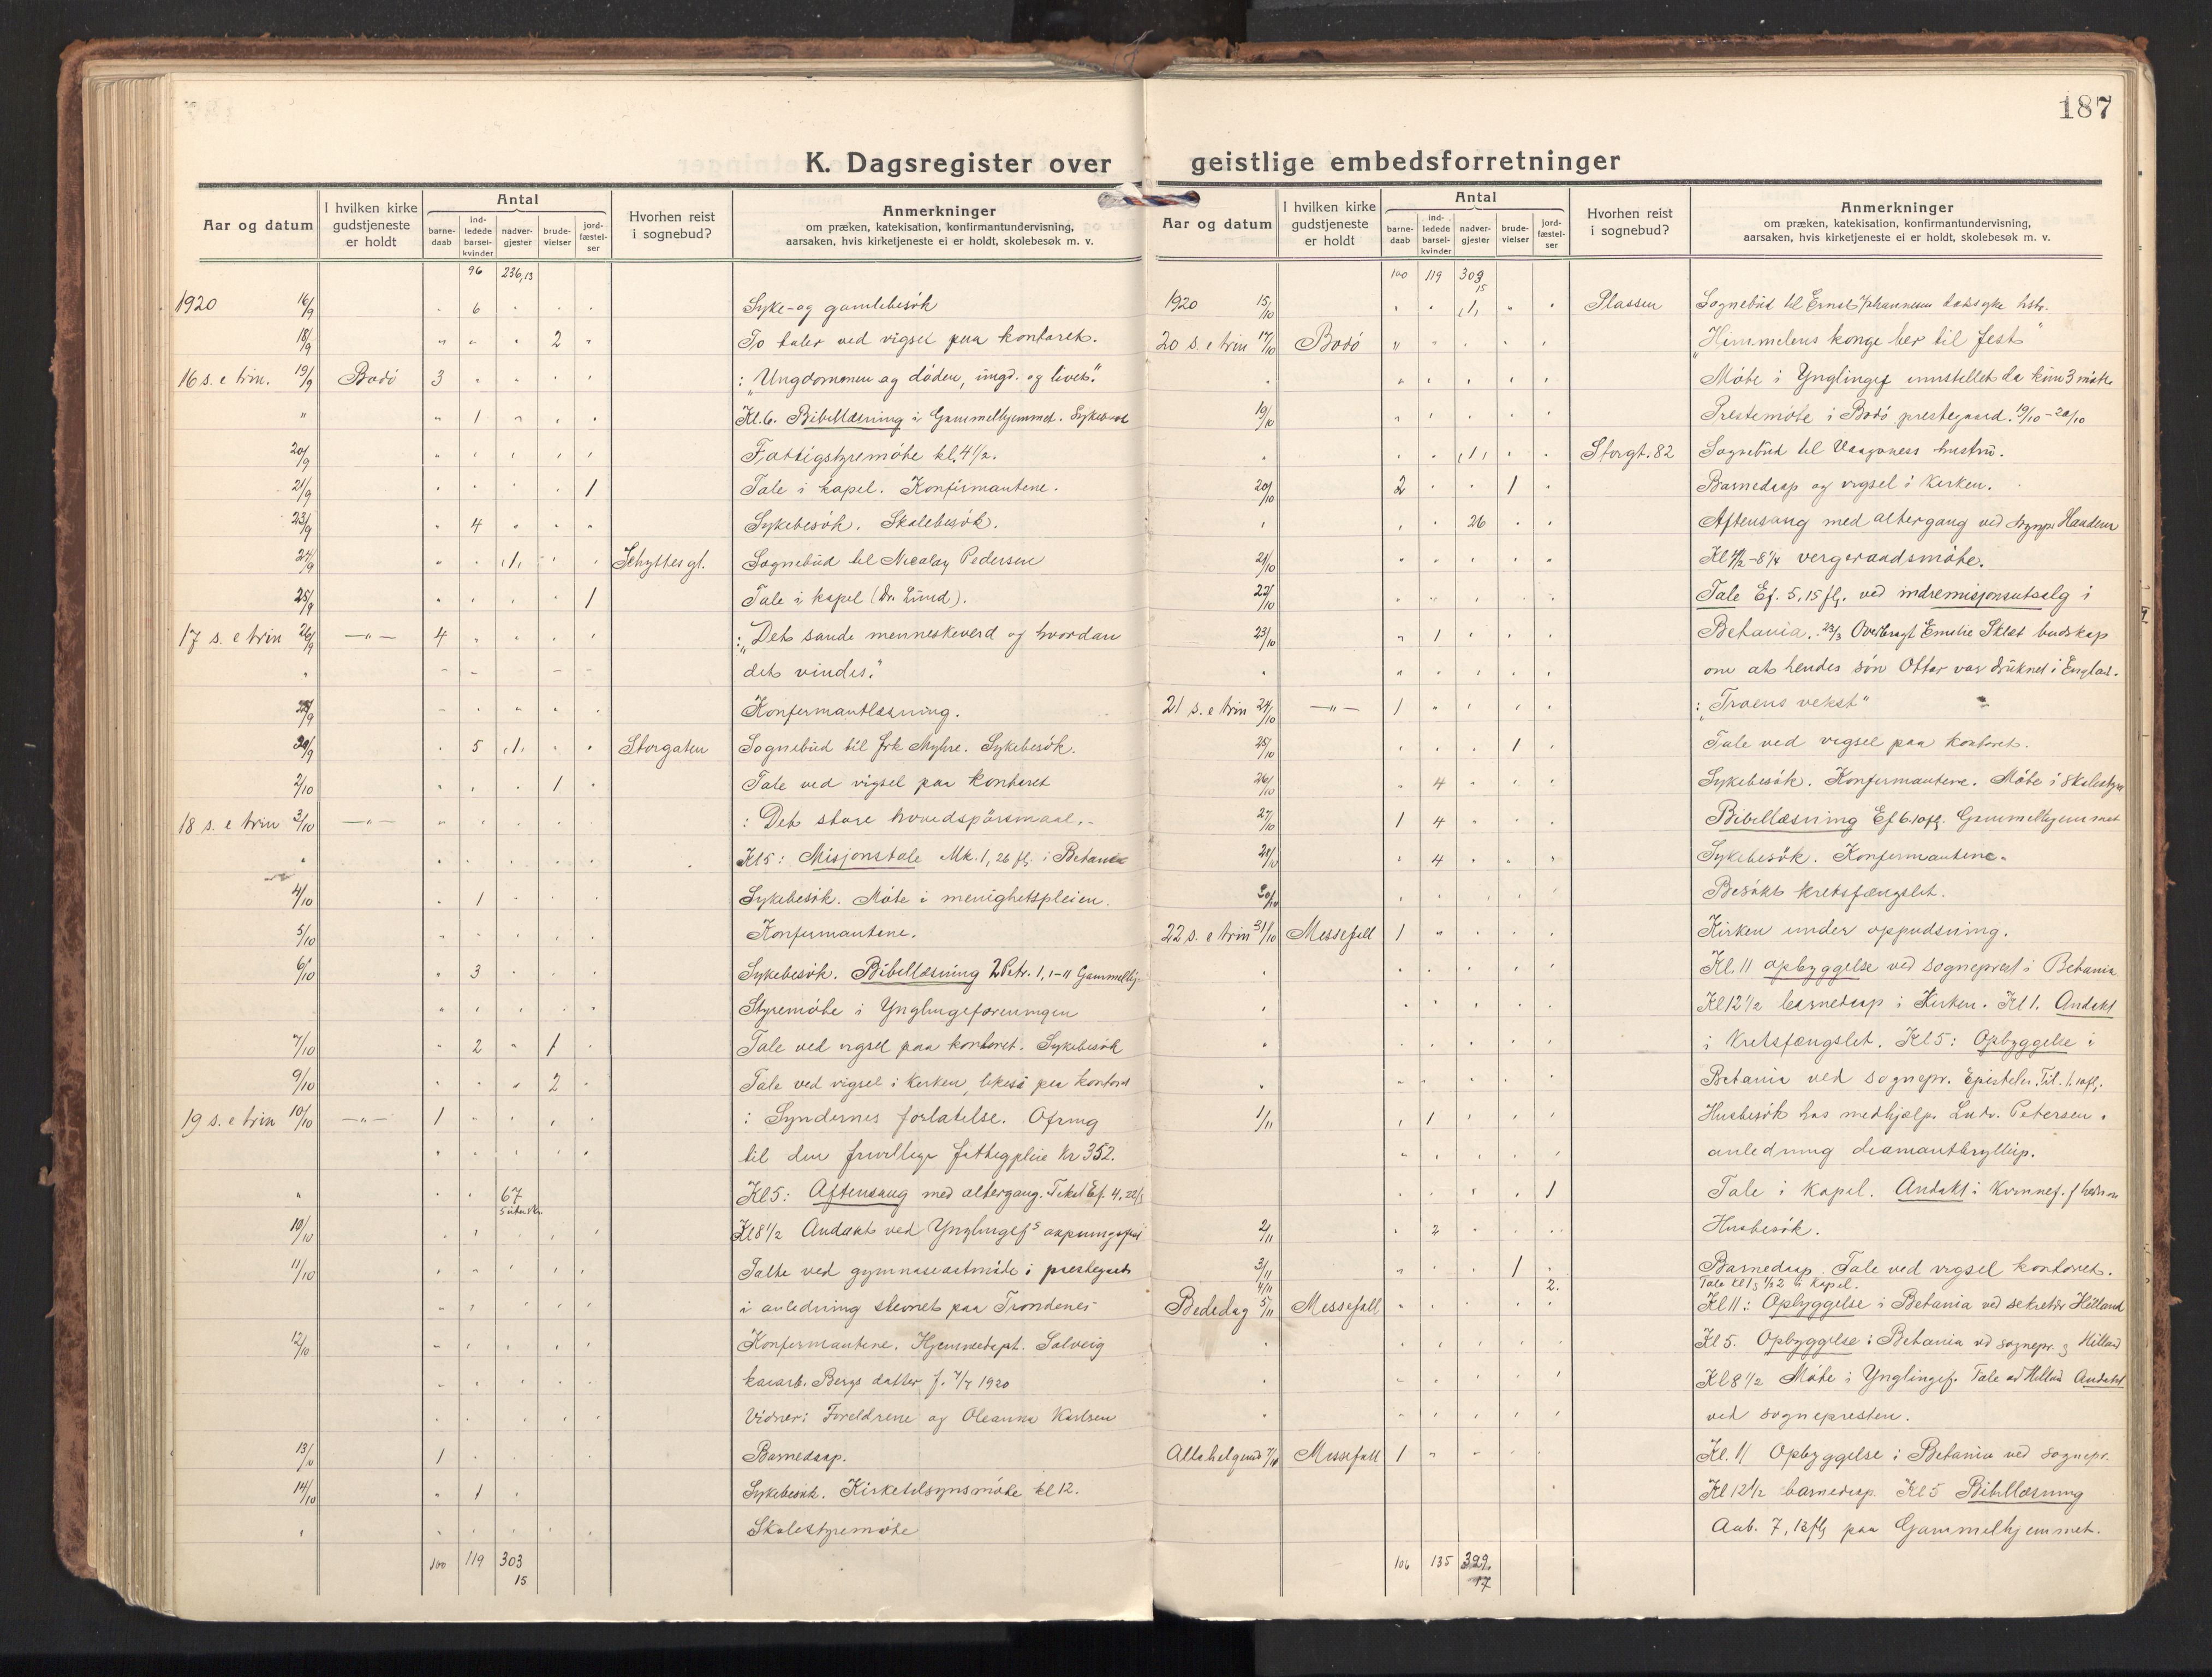 187
K. Dagsregister over geistlige embedsforretninger
Aar og datum
I hvilken kirke gudstjeneste er holdt
Antal
barne-daab
ind-ledede barsel-kvinder
nadver-gjester
brude-vielser
jord-fæstel-ser
Hvorhen reist i sognebud?
Anmerkninger
om præken, katekisation, konfirmantundervisning,
aarsaken, hvis kirketjeneste ei er holdt, skolebesøk m. v.
96 236,13
1920 16/9 6 Syke-og gamlebesök
18/9 2 To taler ved vigsel paa kontoret.
16 s. e trin. 19/9 Bodö 3 : "Ungdommen og döden, ungd. og livet."
" 1 Kl. 6. Bibellæsning i Gammelhjemmet.
20/9 Fattigstyremöte kl. 4 1/2.
21/9 1 Tale i kapel. Konfirmantene.
23/9 4 Sykebesök. Skolebesök.
24/9 1 Schyttesgt. Sognebud til Nicolay Pedersen
25/9 1 Tale i kapel (Dr. Lund).
17 s. e trin 26/9 —"— 4 : "Det sande menneskeverd og hvordan
det vindes."
Konfirmantlæsning.
5 1 Storgaten Sognebud til frk Myhre. Sykebesök.
2/10 1 Tale ved vigsel paa kontoret
18 s. e trin 3/10 —"— : Det store hovedspörsmaal.
Kl 5: Misjonstale Mk. 1, 26 flg. i Betania
4/10 1 Sykebesök. Möte i menighetspleien.
5/10 Konfirmantene.
6/10 3 Sykebesök. Bibellæsning 2 Petr. 1, 1-11 Gammelhj.
Styremöte i Ynglingeforeningen
7/10 2 1 Tale ved vigsel paa kontoret. Sykebesök
9/10 2 Tale ved vigsel i kirken, likesaa paa kontoret
19 s. e trin 10/10 —"— 1 : Syndernes forlatelse. Ofring
til den frivillige fattigpleie Kr 352.
" 67 Kl 5: Aftensang med altergang. Tekst Ef. 4, 22
10/10 Kl 8 1/2 Andakt ved Ynglingef.s
11/10 Talte ved gymnasiastmöte i prestegaard
i anledning stevnet paa Trondenes
12/10 Konfirmantene. Hjemmedöpt. Solveig
Bergs datter f. 1920
Vidner: Foreldrene og Oleanna Karlsen
13/10 1 Barnedaap.
14/10 1 Sykebesök. Kirketilsynsmöte kl 12.
Skolestyremöte
100 119 303 15
Aar og datum
I hvilken kirke gudstjeneste er holdt
Antal
barne-daab
ind-ledede barsel-kvinder
nadver-gjester
brude-vielser
jord-fæstel-ser
Hvorhen reist i sognebud?
Anmerkninger
om præken, katekisation, konfirmantundervisning,
aarsaken, hvis kirketjeneste ei er holdt, skolebesøk m. v.
100 119 303 15
1920 15/10 1 Plassen Sognebud til Ernst Johannesen
20 s. e trin 17/10 Bodö "Himmelens konge ber til fest"
Möte i Ynglingef innstillet da kun 3 mötte
19/10 Prestemöte i Bodö prestegaard. 19/10 - 20/10
1 Storgt. 82 Sognebud til Vaagoness hustru.
20/10 2 1 Barnedaap og vigsel i kirken.
26 Aftensang med altergang ved
21/10 vergeraadsmöte.
22/10 Tale Ef. 5, 15 flg. ved indremisjonsutsalg i
23/10 1 Betania. Overbragt Emilie budskap
om at hendes sön Ottar var druknet i England.
21 s. e trin 24/10 —"— 1 : "Troens vekst"
25/10 1 Tale ved vigsel paa kontoret.
26/10 4 Sykebesök. Konfirmantene. Möte i skolestyre
27/10 1 4 Bibellæsning Ef 6. 10 flg. Gammelhjemmet
28/10 4 Sykebesök. Konfirmantene.
Besökt kretsfængslet.
22 s. e trin 31/10 Messefall 1 Kirken under oppudsning.
Kl. 11 opbyggelse ved sogneprest i Betania
Kl 12 1/2 barnedaap i kirken. Kl 1. Andakt
i kretsfængslet. Kl 5: Opbyggelse i
Betania ved sognepr. Epistelen. Tit. 1. 10 flg.
1/11 1 Husbesök hos medhjælp. Ludv. Petersen
anledning diamantbryllup.
1 Tale i kapel. Andakt i Kvinnef.
2/11 2 Husbesök.
3/11 1 Barnedaap. Tale ved vigsel kontoret.
4/11 2.
Bededag 5/11 Messefall Kl 11: Opbyggelse i Betania ved sekretær Hilland
Kl 5. Opbyggelse i Betania ved sognepr. og Hilland
Kl 8 1/2 Möte i Ynglingef. Tale ved Hilland Andakt
ved sognepresten.
Allehelgensd 7/11 Messefall 1 Kl. 11 Opbyggelse i Betania ved sognepr.
Kl 12 1/2 barnedaap. Kl 5 Bibellæsning
Aab. 7, 13 flg paa Gammelhjemmet.
106 135 329 17